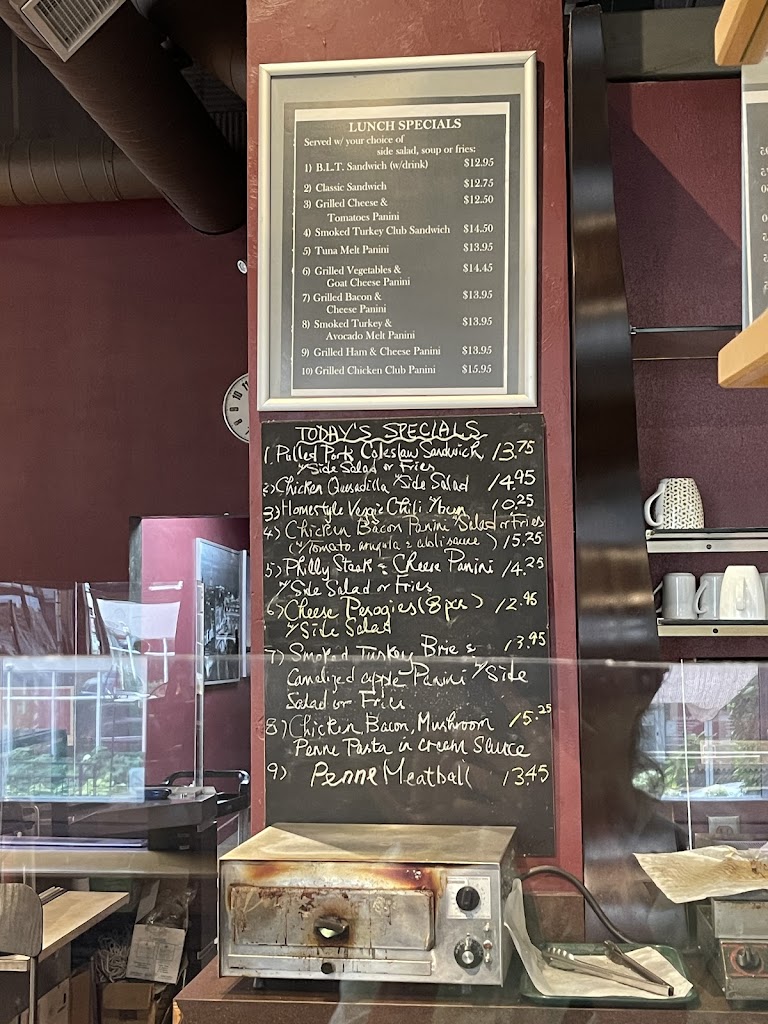 LUNCH SPECIALS
Served w/ your choice of
side salad, soup or fries:
1) B.L.T. Sandwich (w/drink) $12.95
2) Classic Sandwich $12.75
3) Grilled Cheese & $12.50
Tomatoes Panini
4) Smoked Turkey Club Sandwich $14.50
5) Tuna Melt Panini $13.95
6) Grilled Vegetables & $14.45
Goat Cheese Panini
7) Grilled Bacon & $13.95
Cheese Panini
8) Smoked Turkey & $13.95
Avocado Melt Panini
9) Grilled Ham & Cheese Panini $13.95
10) Grilled Chicken Club Panini $15.95
TODAY'S SPECIALS
1. Pulled Pork Coleslaw Sandwich 13.75
w/ Side Salad or Fries
2) Chicken Quesadilla w/ Side Salad 14.95
3) Homestyle Veggie Chili w/ bun 10.25
4) Chicken Bacon Panini w/ Salad or Fries
(w/ tomato, arugula & aioli sauce) 15.25
5) Philly Steak & Cheese Panini 14.25
w/ Side Salad or Fries
6) Cheese Perogies (8 pcs) 12.95
w/ Side Salad
7) Smoked Turkey Brie & 13.95
Camelized apple Panini w/ Side
Salad or Fries
8) Chicken, Bacon, Mushroom 15.25
Penne Pasta in cream Sauce
9) Penne Meatball 13.45